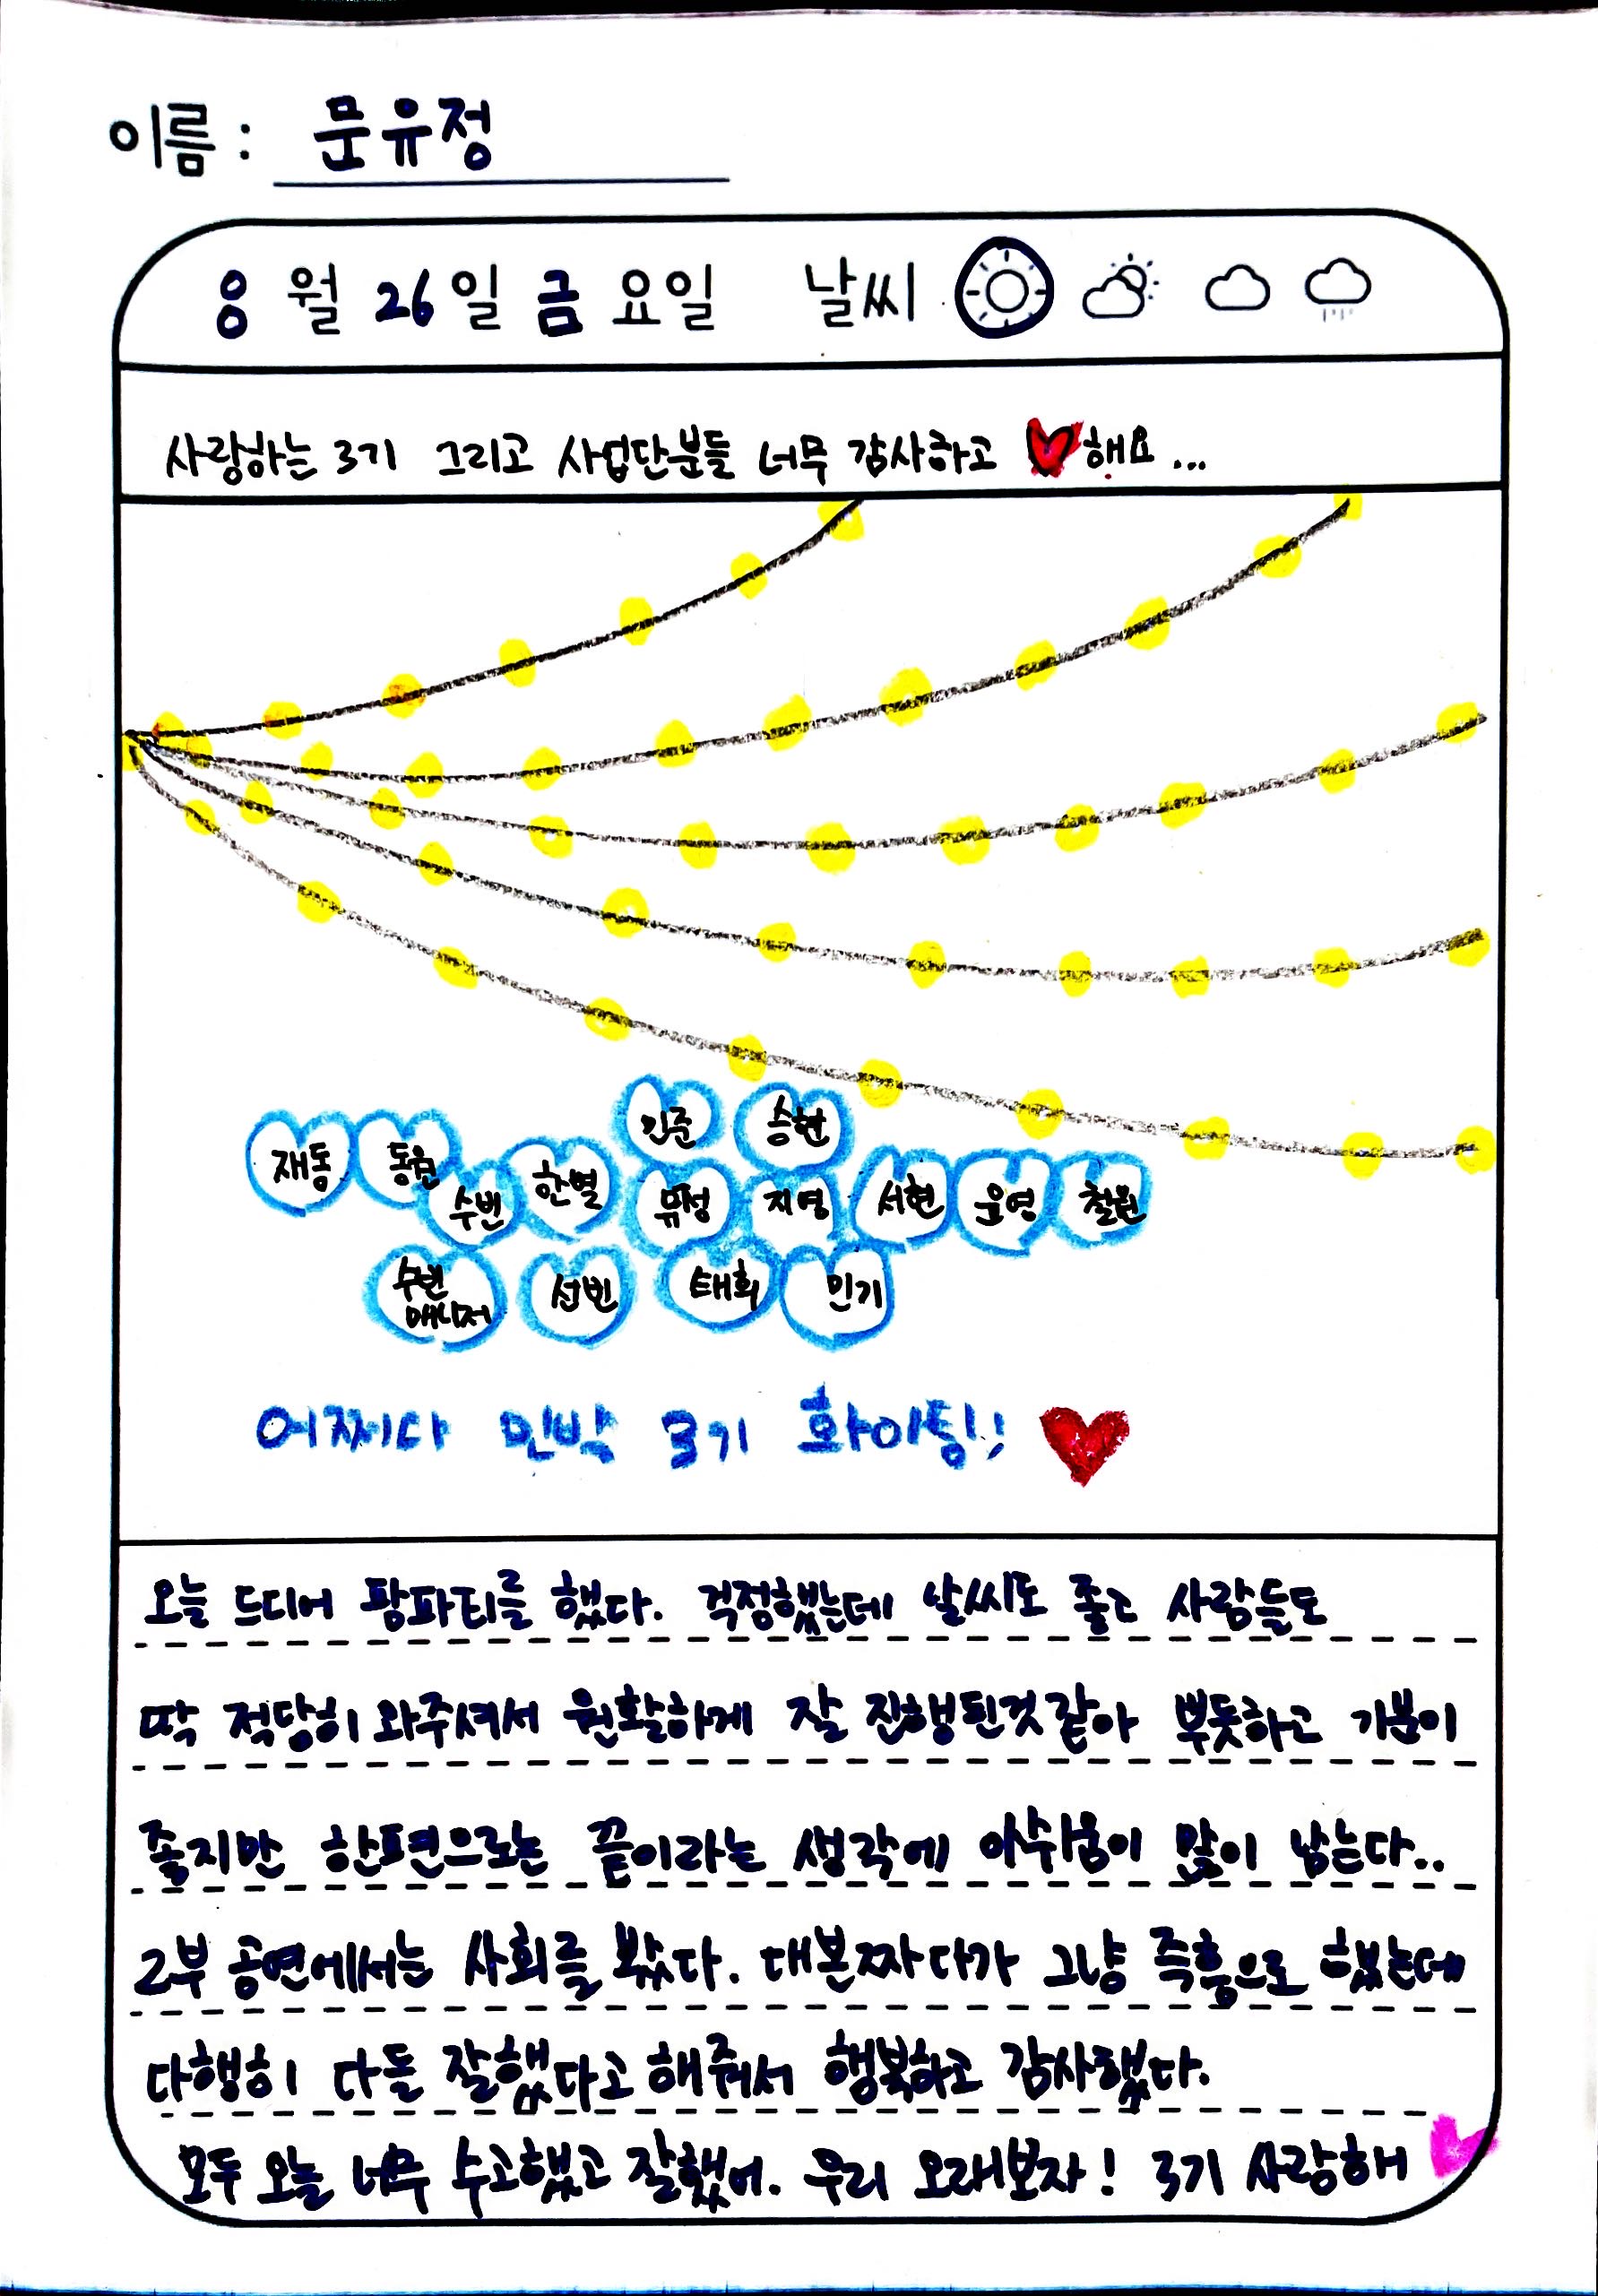 이름 : 문유정
8 월 26 일 금 요일 날씨
사랑하는 3기 그리고 사업단분들 너무 감사하고 ♥해요...
민준 승현
재동 동원 수빈 한별 유정 지영 서현 운영 철원
수빈 매니저 선빈 태희 민기
어쩌다 민박 3기 화이팅!!
오늘 드디어 팜파티를 했다. 걱정했는데 날씨도 좋고 사람들도
딱 적당히 와주셔서 원활하게 잘 진행된것같아 뿌듯하고 기분이
좋지만 한편으로는 끝이라는 생각에 아쉬움이 많이 남는다..
2부 공연에서는 사회를 봤다. 대본짜다가 그냥 즉흥으로 했는데
다행히 다들 잘했다고 해줘서 행복하고 감사했다.
모두 오늘 너무 수고했고 잘했어. 우리 오래보자! 3기 사랑해